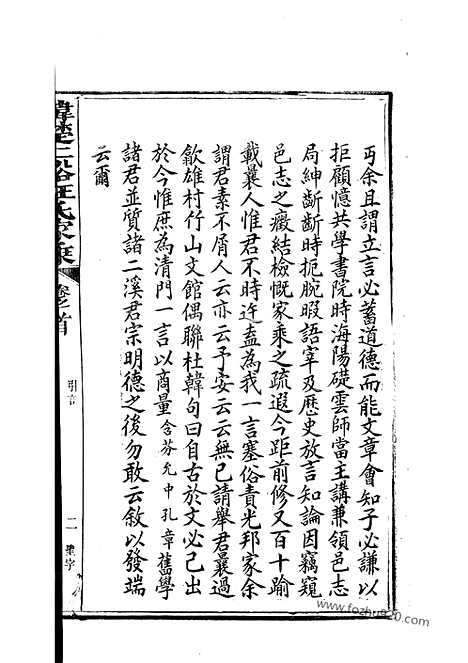 丐余且謂立言必蓄道德而能文章會知子必謙以
拒顧憶共學書院時海陽礎雲師當主講兼領邑志
局紳齗齗時扼腕暇語宰及歷史放言知論因竊窺
邑志之癥結檢慨家乘之疏遐今距前修又百十踰
載曩人惟君不時迕盍為我一言塞俗責光邦家余
謂君素不屑人云亦云予安云云無已請舉君曩過
歙雄村竹山文館偶聯杜韓句曰自古於文必己出
於今惟庶為清門一言以商量含芬允中孔章舊學
諸君並質諸二溪君宗明德之後勿敢云敘以發端
云爾
韓楚二溪汪氏家乘
卷之首
引言
二
聖字
www.fozhu920.com